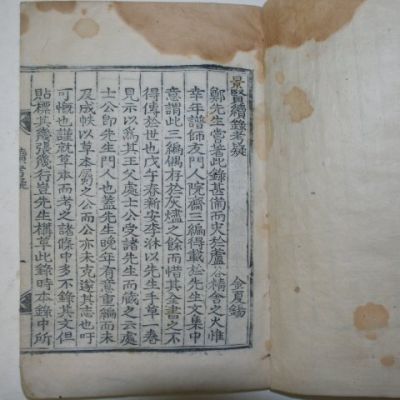 景賢續錄考疑
金夏錫
鄭先生嘗著此錄甚備而灾於蘆谷精舍之火惟
幸年譜師友門人院齋三編得載於先生文集中
意謂此三編偶存於灰燼之餘而惜其全書之不
得傳於世也戊午春新安李淋以先生手草一卷
見示以爲其王父處士公受諸先生而藏之云處
士公卽先生門人也蓋先生晩年有意重編而未
及成帙以草本之公而公亦未克遂其志也吁
可慨也謹就草本而考之諸條中多不錄其文但
貼標其幾張幾行豈先生搆草此錄時本錄中所